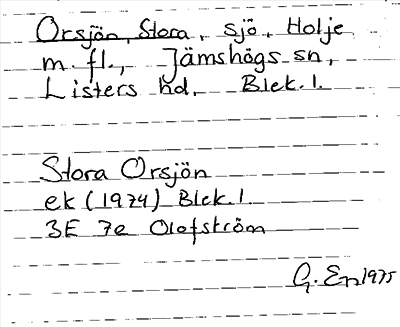 Orsjön, Stora, sjö, Holje
m. fl., Jämshögs sn,
Listers hd, Blek. l.
Stora Orsjön
ek (1974) Blek. l.
3E 7e Olofström
G. En 1975